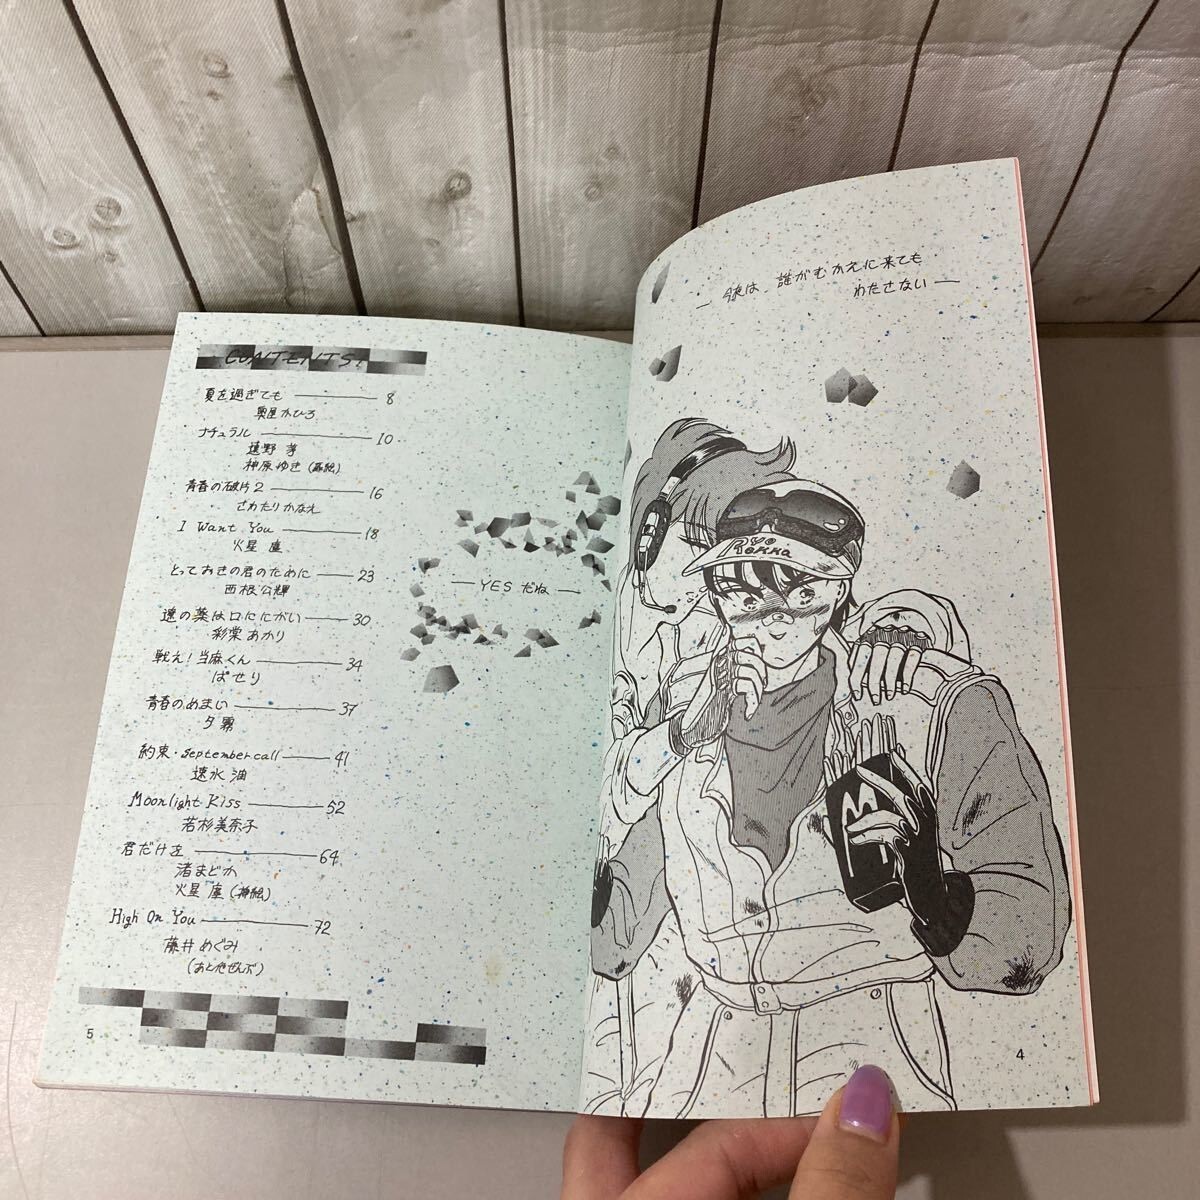 ― 今夜は、誰がむかえに来ても
わたさない ―
Ryo
Rekka
4
CONTENTS!
夏を過ぎても ――― 8
奥屋かひろ
ナチュラル ――― 10
遠野 芽
神原ゆき(扉絵)
青春の破片2 ――― 16
さわたりかなえ
I Want You ――― 18
火星 座
とっておきの君のために ――― 23
西根公輝
遼の薬は口ににがい ――― 30
彩棠あかり
戦え!当麻くん ――― 34
ぱせり
青春のめまい ――― 37
夕霧
約束・September call ――― 41
速水 油
Moonlight Kiss ――― 52
若杉美奈子
君だけを ――― 64
渚まどか
火星 座(挿絵)
High On You ――― 72
藤井めぐみ
(あとがぜんぶ)
― YES だね ―
5